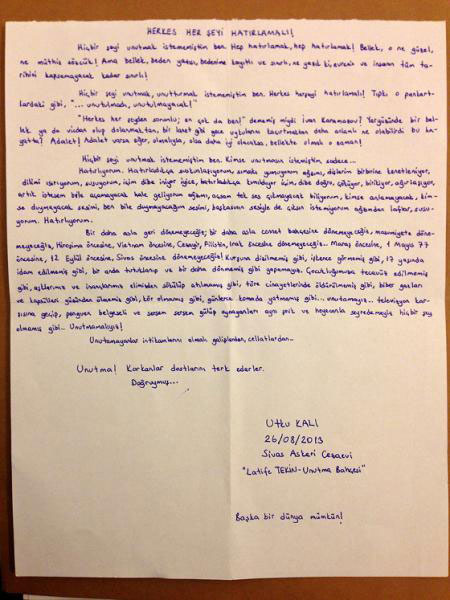 HERKES HER ŞEYİ HATIRLAMALI!
Hiçbir şeyi unutmak istememiştim ben. Hep hatırlamak, hep hatırlamak! Bellek, o ne güzel,
ne müthiş sözcük! Ama bellek, beden yazısı, bedenime kayıtlı ve sınırlı, ne yazık ki evrenin ve insanın tüm ta-
rihini kapsamayacak kadar sınırlı!
Hiçbir şeyi unutmak, unutturmak istememiştim ben. Herkes herşeyi hatırlamalı! Tıpkı o pankart-
lardaki gibi, "... unutulmadı, unutulmayacak!"
"Herkes her şeyden sorumlu; en çok da ben!" dememiş miydi Ivan Karamazov? Yeryüzünde bir bel-
lek ya da vicdan olup dolanmaktan, bir lanet gibi gece uykularını kaçırtmaktan daha anlamlı ne olabilirdi bu ha-
yatta? Adalet! Adalet varsa eğer, olmalıysa, olsa daha iyi olacaksa, bellekte olmalı o zaman!
Hiçbir şeyi unutmak istememiştim ben. Kimse unutmasın istemiştim sadece...
Hatırlıyorum. Hatırladıkça suskunlaşıyorum, sımsıkı yumuyorum ağzımı, dişlerim birbirine kenetleniyor,
dilimi ısırıyorum, susuyorum, içim dibe iniyor iyice, hatırladıkça kımıldıyor içim, dibe doğru, çöküyor, birikiyor, ağırlaşıyor,
artık istesem bile açamayacak hale geliyorum ağzımı, açsam tek ses çıkmayacak biliyorum, kimse anlamayacak, kim-
se duymayacak sesimi, ben bile duymayacağım sesimi, başkasının sesiyle de çıksın istemiyorum ağzımdan laflar, susu-
yorum. Hatırlıyorum.
Bir daha asla geri dönemeyeceğiz; bir daha asla cennet bahçesine dönemeyeceğiz, masumiyete döne-
meyeceğiz, Hiroşima öncesine, Vietnam öncesine, Cezayir, Filistin, Irak öncesine dönemeyeceğiz... Maraş öncesine, 1 Mayıs 77
öncesine, 12 Eylül öncesine, Sivas öncesine dönemeyeceğiz! Kurşuna dizilmemiş gibi, işkence görmemiş gibi, 17 yaşında
idam edilmemiş gibi, bir anda tutuklanıp ve bir daha dönmemiş gibi yapamayız. Çocukluğumuza tecavüz edilmemiş
gibi, aşklarımız ve inançlarımız elimizden sökülüp atılmamış gibi, töre cinayetlerinde öldürülmemiş gibi, biber gazları
ve kapsülleri yüzünden ölmemiş gibi, kör olmamış gibi, günlerce komada yatmamış gibi... unutamayız... televizyon kar-
şısına geçip, penguen belgeseli ve sersem sersem gülüp oynayanları aynı şevk ve heyecanla seyredemeyiz hiçbir şey
olmamış gibi... Unutmamalıyız!
Unutamayanlar intikamlarını almalı galiplerden, cellatlardan...
Unutma! Korkanlar dostlarını terk ederler.
Doğruymuş...
Utku KALI
26/08/2013
Sivas Askeri Cezaevi
"Latife TEKİN-Unutma Bahçesi"
Başka bir dünya mümkün!